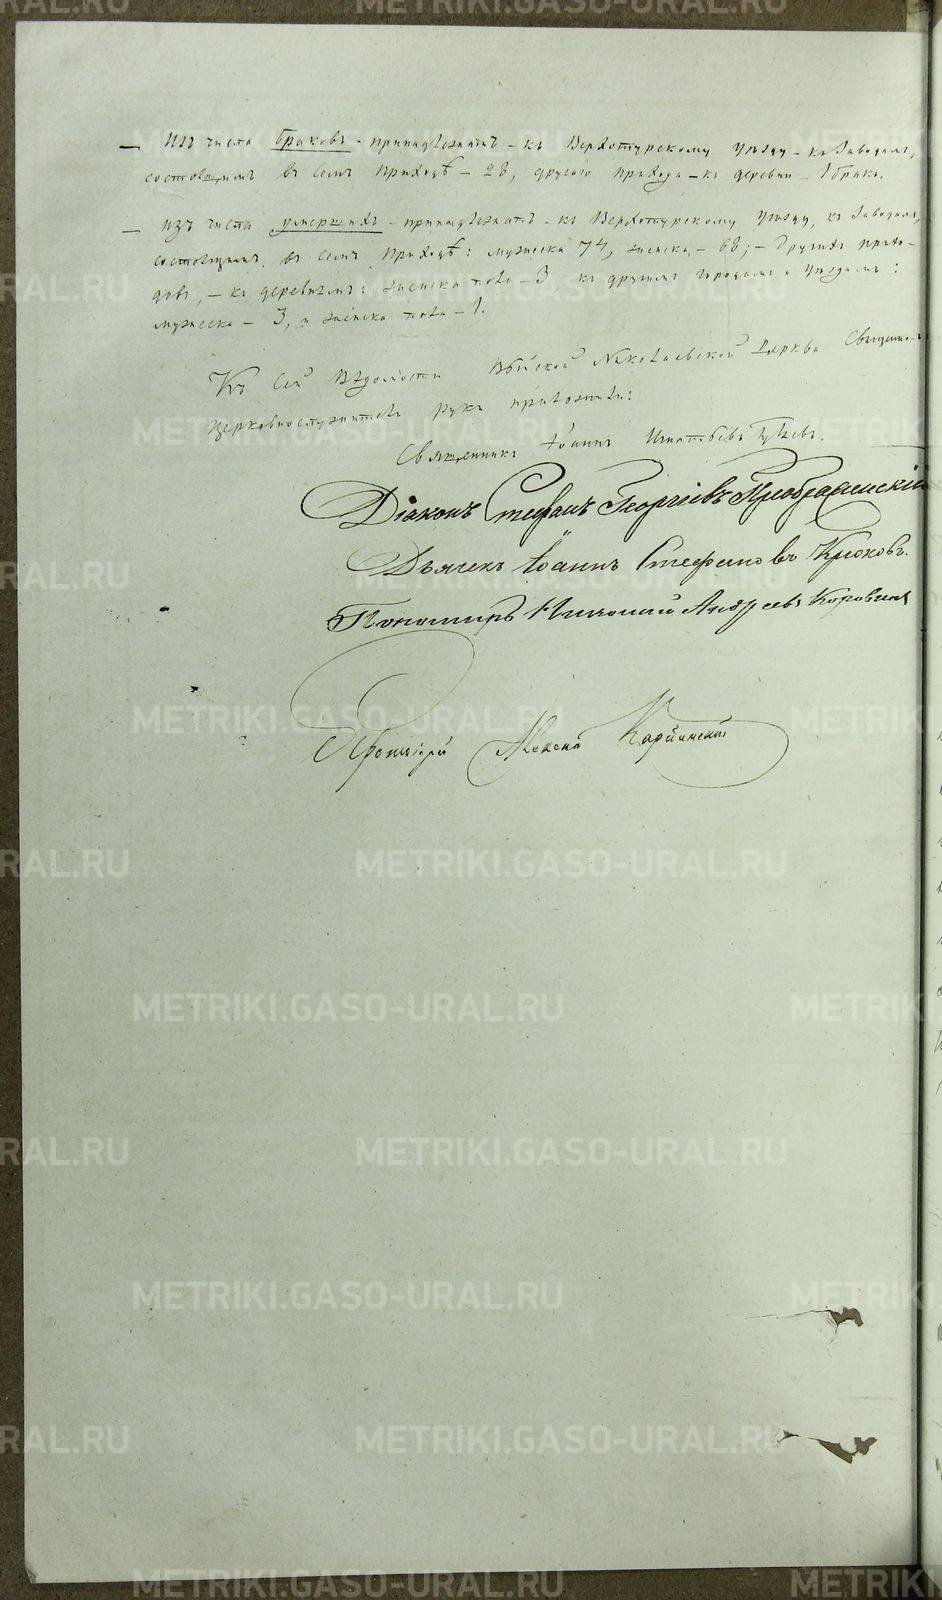 — Изъ числа браковъ - принадлежатъ - къ Верхотурскому Уѣзду - къ Заводамъ,
состоящимъ въ семъ Приходѣ - 28, другаго прихода - къ деревни - 1 бракъ.
— Изъ числа умершихъ - принадлежатъ - къ Верхотурскому Уѣзду, къ Заводамъ,
состоящимъ въ семъ Приходѣ: мужеска 74, женска - 68; - Другихъ прихо-
довъ, - къ деревнямъ: женска пола - 3, къ другимъ городамъ и Уѣздамъ:
мужеска - 3, и женска пола - 1.
Къ сей Вѣдомости Выйской Николаевской Церкви Священно-
церковнослужители руки приложили:
Священникъ Іоаннъ Игнатьевъ
Діаконъ Стефанъ Георгіевъ Преображенскій
Дьячекъ Іоаннъ Стефановъ Крюковъ.
Пономарь Николай Андреевъ Коровинъ
METRIKI.GASO-URAL.RU